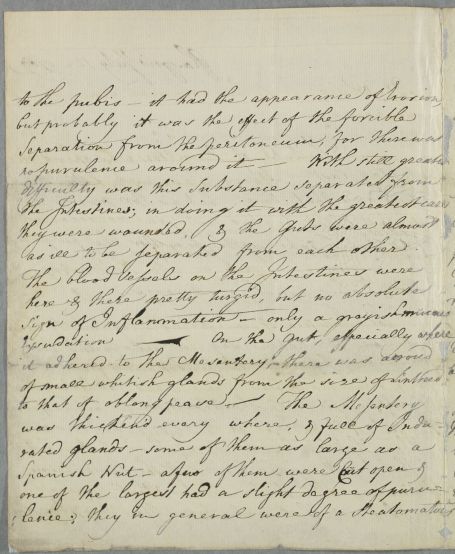 to the pubis – it had the appearance of Erosion
but probably it was the effect of the forcible
Separation from the peritoneum, for there was
no purulence around it — With still greater
difficulty was this Substance separated from
the Intestines; in doing it with the greatest care
they were wounded, & the Guts were almost
as ill to be separated from each other.
The blood vessels on the Intestines were
here & there pretty turgid, but no absolute
Sign of Inflammation – only a grayish mucous
Exsudation — On the gut, especially where
it adhered to the Mesentery, there was a
of small whitish glands from the size of
to that of oblong pease — The Mesentery
was thickend every where, & full of Indu-
rated glands – some of them as large as a
Spanish Nut – a few of them were cut open &
one of the largest had a slight degree of puru-
lence; they in general were of a Steatomatous